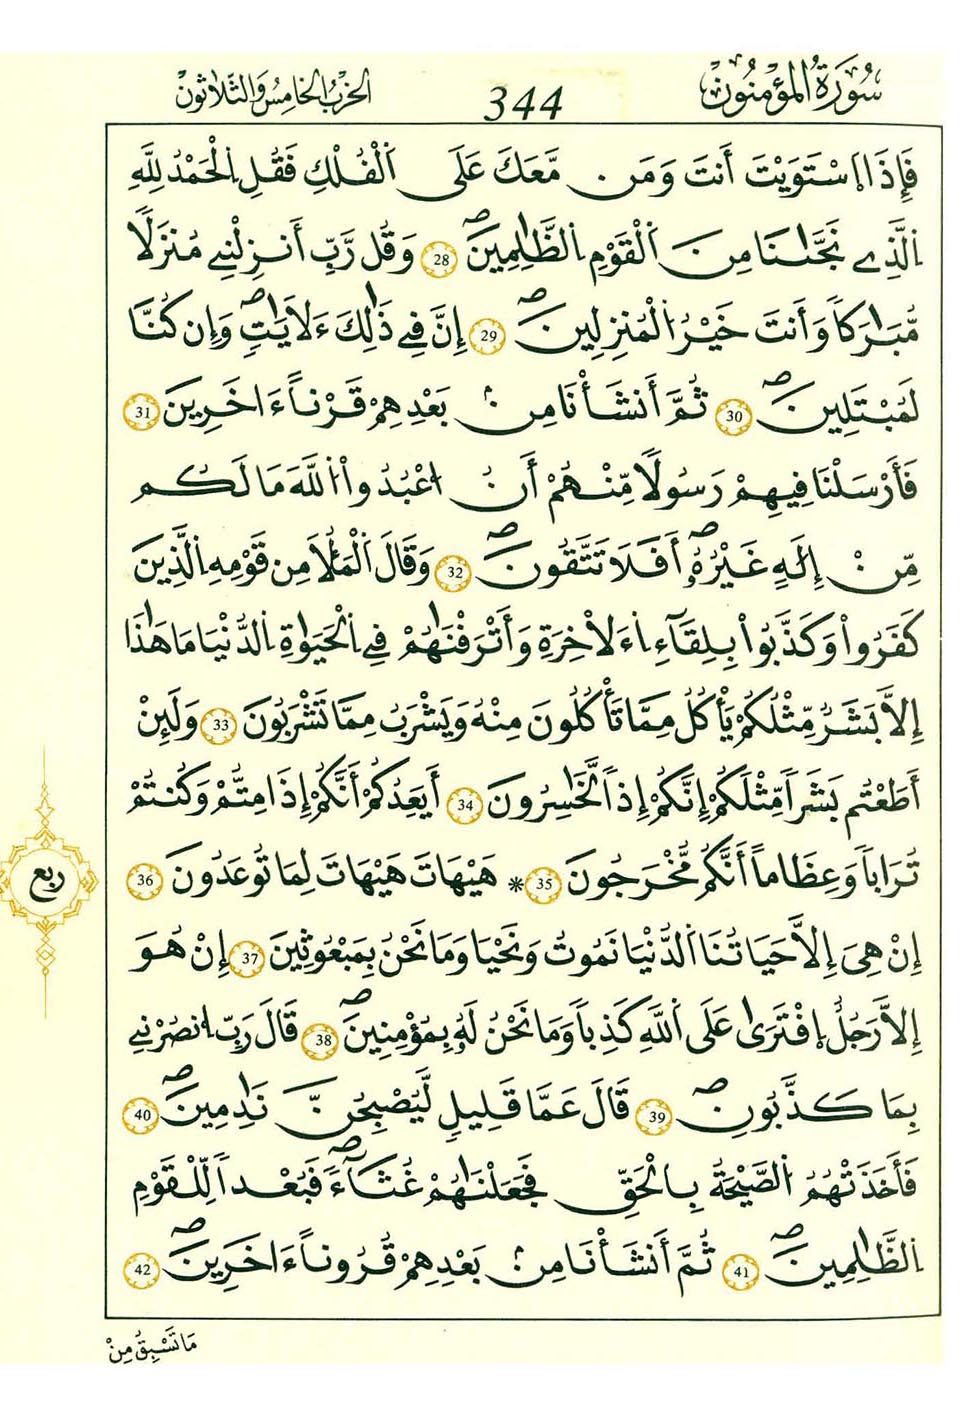 سُورَةُ المُؤْمِنُونَ 344 الحِزْبُ الخَامِسُ وَالثَّلَاثُونَ
فَإِذَا اَسْتَوَيْتَ أَنتَ وَمَن مَّعَكَ عَلَى اَلْفُلْكِ فَقُلِ اِلْحَمْدُ لِلَّهِ
اِلَّذِے نَجَّىٰنَا مِنَ اَلْقَوْمِ اِلظَّٰلِمِينَۖ 28 وَقُل رَّبِّ أَنزِلْنِے مُنزَلًا
مُّبَٰرَكاً وَأَنتَ خَيْرُ اُلْمُنزِلِينَۖ 29 إِنَّ فِے ذَٰلِكَ ءَلَايَٰتٍۖ وَإِن كُنَّا
لَمُبْتَلِينَۖ 30 ثُمَّ أَنشَأْنَا مِنۢ بَعْدِهِمْ قَرْناً ءَاخَرِينَ 31
فَأَرْسَلْنَا فِيهِمْ رَسُولًا مِّنْهُمْ أَنُ اُعْبُدُواْ اُللَّهَ مَا لَكُم
مِّنْ إِلَٰهٍ غَيْرُهُۥۖ أَفَلَا تَتَّقُونَۖ 32 وَقَالَ اَلْمَلَأُ مِن قَوْمِهِ اِلَّذِينَ
كَفَرُواْ وَكَذَّبُواْ بِلِقَآءِ اِءَلَاخِرَةِ وَأَتْرَفْنَٰهُمْ فِے اِلْحَيَوٰةِ اِلدُّنْيَا مَا هَٰذَا
إِلَّا بَشَرٌ مِّثْلُكُمْ يَأْكُلُ مِمَّا تَأْكُلُونَ مِنْهُ وَيَشْرَبُ مِمَّا تَشْرَبُونَ 33 وَلَئِنْ
أَطَعْتُم بَشَراً مِّثْلَكُمْ إِنَّكُمْ إِذاً لَّخَٰسِرُونَ 34 أَيَعِدُكُمْ أَنَّكُمْ إِذَا مِتُّمْ وَكُنتُمْ
تُرَاباً وَعِظَاماً أَنَّكُم مُّخْرَجُونَ 35 * هَيْهَاتَ هَيْهَاتَ لِمَا تُوعَدُونَ 36
ربع
إِنْ هِيَ إِلَّا حَيَاتُنَا اَلدُّنْيَا نَمُوتُ وَنَحْيَا وَمَا نَحْنُ بِمَبْعُوثِينَ 37 إِنْ هُوَ
إِلَّا رَجُلٌ اِفْتَرَىٰ عَلَى اَللَّهِ كَذِباً وَمَا نَحْنُ لَهُۥ بِمُؤْمِنِينَۖ 38 قَالَ رَبِّ اِنصُرْنِے
بِمَا كَذَّبُونِۖ 39 قَالَ عَمَّا قَلِيلٍ لَّيُصْبِحُنَّ نَٰدِمِينَۖ 40
فَأَخَذَتْهُمُ اُلصَّيْحَةُ بِالْحَقِّ فَجَعَلْنَٰهُمْ غُثَآءًۖ فَبُعْداً لِّلْقَوْمِ
اِلظَّٰلِمِينَۖ 41 ثُمَّ أَنشَأْنَا مِنۢ بَعْدِهِمْ قُرُوناً ءَاخَرِينَۖ 42
مَا تَسْبِقُ مِنْ